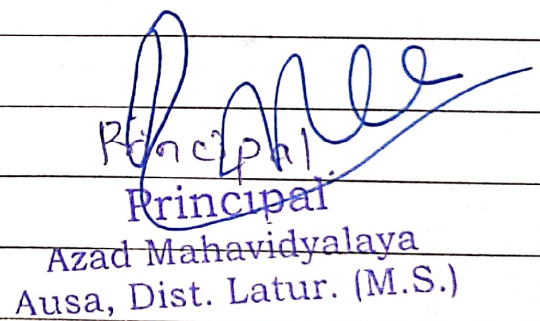 Principal
Principal
Azad Mahavidyalaya
Ausa, Dist. Latur. (M.S.)